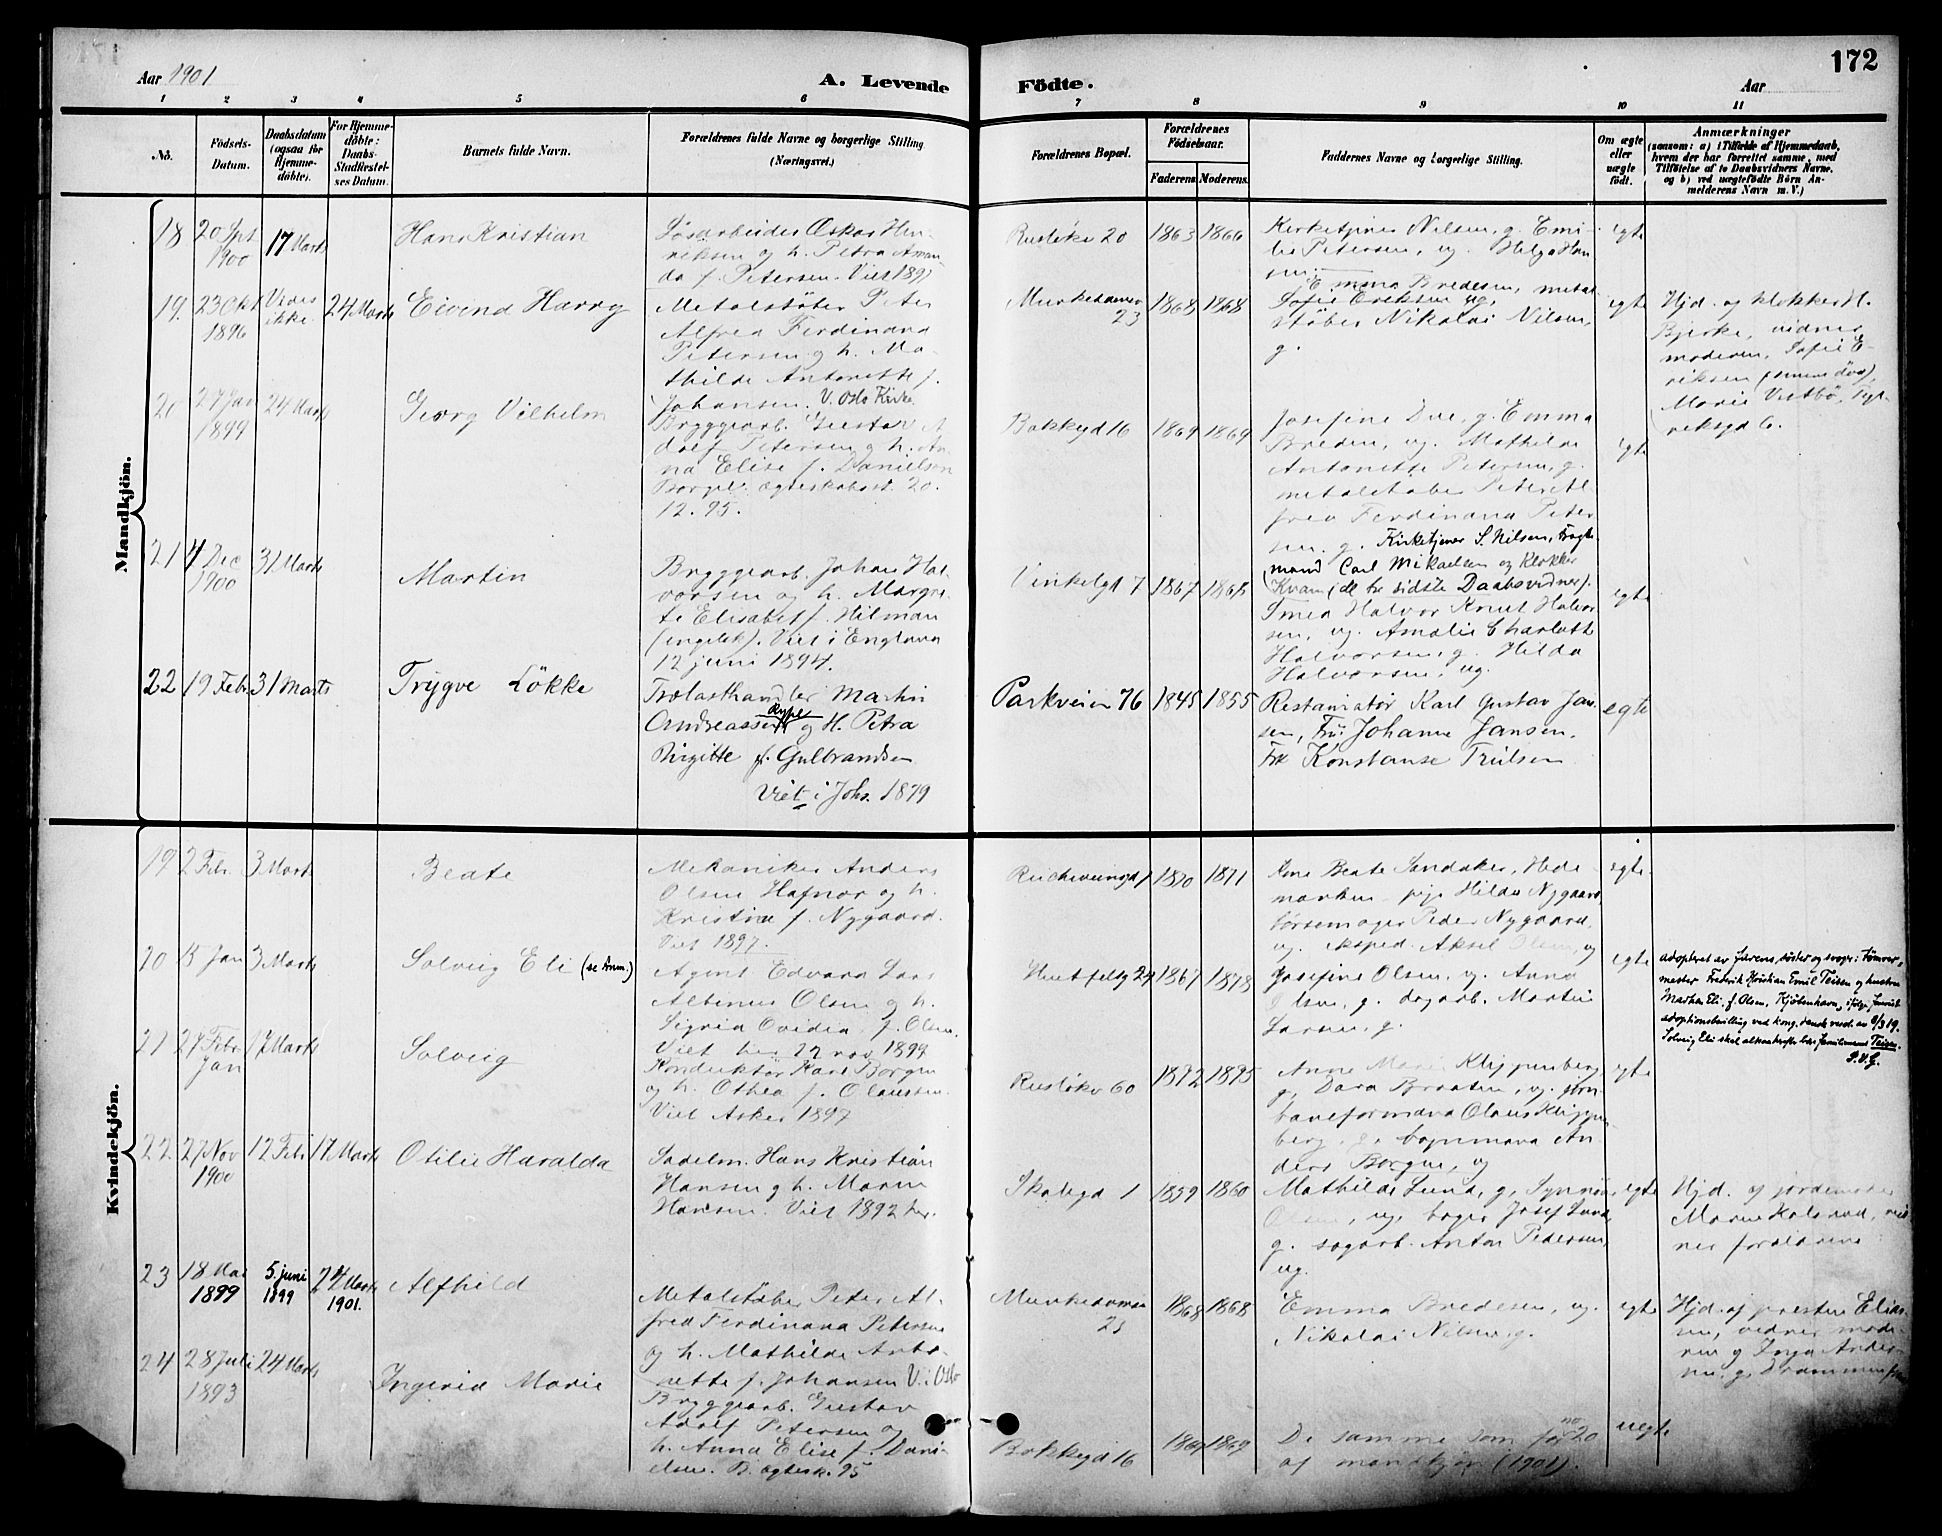 172
Aar 1901
A. Levende
Födte.
Aar
1 2 3 4 5 6 7 8 9 10 11
No.
Födsels-
Datum.
Daabsdatum
(ogsaa for
Hjemme-
döbte).
For Hjemme-
döbte:
Daabs-
Stadfæstel-
ses Datum.
Barnets fulde Navn.
Forældrenes fulde Navne og borgerlige Stilling
(Næringsvei.)
Forældrenes Bopæl.
Forældrenes
Födselsaar.
Faderens Moderens.
Faddernes Navne og borgerlige Stilling.
Om ægte
eller
uægte
födt.
Anmærkninger
(saasom: a) i Tilfælde af Hjemmedaab,
hvem der har forrettet samme, med
Tilföielse af to Daabsvidners Navne,
og b) ved uægtefödte Börn An-
melderens Navn m. V.)
Mandkjön.
18 20
1900
17 Marts
Hans Kristian
Løsarbeider Oskar Hen-
riksen og h. Petra Aman-
da f. Petersen. Viet 1897
Ruseløkv 20
1863 1866
Kirketjener Nilsen, g. Emi-
lie Petersen, ug. Helga Han
sen
egte
19. 23 Okt
1896
Vides
ikke.
24 Marts
Eivind Harry
Metalstøber Peter
Alfred Ferdinand
Petersen g h. Ma-
thilde Antonette f.
Johansen. V. Oslo Kirke
Munkedamsv
23
1868 1868
Emma Bredesen, metal
Sofie Eriksen ug.
støber Nikolai Nilsen,
g.
egte
Hjd. og klokker H.
Bjerke, vidner
moderen, Sofie E-
riksen
Marie Vestbø,
6.
20 27 Jan
1899
24 Marts
Georg Vilhelm
Bryggearb. Gustav A
dolf Petersen g h. An-
na Elise f. Danielsen
Borgel. ægteskabsat. 20.
12.95.
Bakkegd 16
1869 1869
Josefine Due, g. Emma
Breden, ug. Mathilde
Antonette Petersen, g.
metalstøber Peter Al-
fred Ferdinand Peter
sen. g. Kirketjener S. Nilsen, Fragt
mand Carl Mikaelsen og Klokker
Kvam (de tre sidste Daabsvidner).
egte
21 4 Dec
1900
31 Marts
Martin
Bryggearb. Johan Hal-
vorsen og h. Margre-
te Elisabet f. Hilman
(engelsk). Viet i England
12 juni 1894.
Vinkelgt 7
1867 1865
Smed Halvor Knut Halvor
sen, ug. Amalie Charlotte
Halvorsen, g. Hilda
Halvorsen, ug.
egte
22 19 Febr. 31 Marts
Trygve Løkke
Trælasthandler Martin
Andreassen Rype og H. Petra
Birgitte f. Gulbrandsen
Viet i Johs. 1879
Parkveien 76
1845 1855
Restauratør Karl Gustav Jan
sen, Fru Johanne Jansen.
Frk Konstanse Trulsen
egte
Kvindekjön.
19 2 Febr. 3 Marts
Beate
Mekaniker Anders
Olsen Hafnor og h.
Kristine f. Nygaard.
Viet 1897.
1870 1871
Ane Beate Sandaker, Hede-
marken pige Hilda Nygaard
børsemager Peder Nygaard,
ug. eksped. Aksel Olsen, ug
egte.
20 13 Jan 3 Marts
Solveig Eli (se Anm.)
Agent Edvard Lars
Albinus Olsen og h.
Sigrid Ovidia, f. Olsen.
Viet her 22 nov 1899
Huitfeldg 24
1867 1878
Josefine Olsen, ug. Anna
Olsen, g. dagarb. Martin
Larsen, g.
egte
adopteret av farens søster og svoger: Tømrer-
mester Fredrik Kristian Emil Teisen og hustru
Marthea Eli, f. Olsen, Kjøbenhavn, ifølge
adoptionsbevilling ved kong. dansk resol. av 8/3 19.
Solveig Eli skal alene bære familienavnet Teisen.
S.V.G.
21 27 Febr.
Jan
17 Marts
Solveig
Konduktør Karl Borgen
og h. Othea f. Olaussen.
Viet Asker 1897
Ruseløkv 60
1872 1875
Anne Marie Klippenberg
g, Dora Braaten, ug. jern
baneformand Olaus Klippen
berg, g. bogmand An-
ders Borgen, ug
egte
22 27 Nov
1900
12 Febr 17 Marts
Otilie Haralda
Sadelm. Hans Kristian
Hansen g h. Maren
Hansen. Viet 1892 her.
1
1859 1860
Mathilde Lund, g, Synnøve
Olsen, ug. bager Josef Lund,
g. sagarb. Anton Pedersen,
ug.
egte
Hjd. af jordemoder
Maren Kolsrud, vid-
ner forældrene
23 18 Mai
1899
5. juni
1899
24 Marts
1901.
Alfhild
Metalstøber Peter Al-
fred Ferdinand Petersen
og h. Mathilde Anto-
nette f. Johansen V. i Oslo
Munkedamsv
23
1868 1868
Emma Bredesen, ug.
Nikolai Nilsen, g.
egte
Hjd. af presten Elias-
sen, vidner mode-
ren g Inga Ander-
sen. g, Drammen
24 28 Juli
1893
24 Marts
Ingerid Marie
Bryggearb. Gustav
Adolf Petersen og
h. Anna Elise f. Dani-
elsen. B. ægtesk. 95
Bakkegd 16
1869 1869
De samme som for no 20
af mandkjøn (1901).
uegte